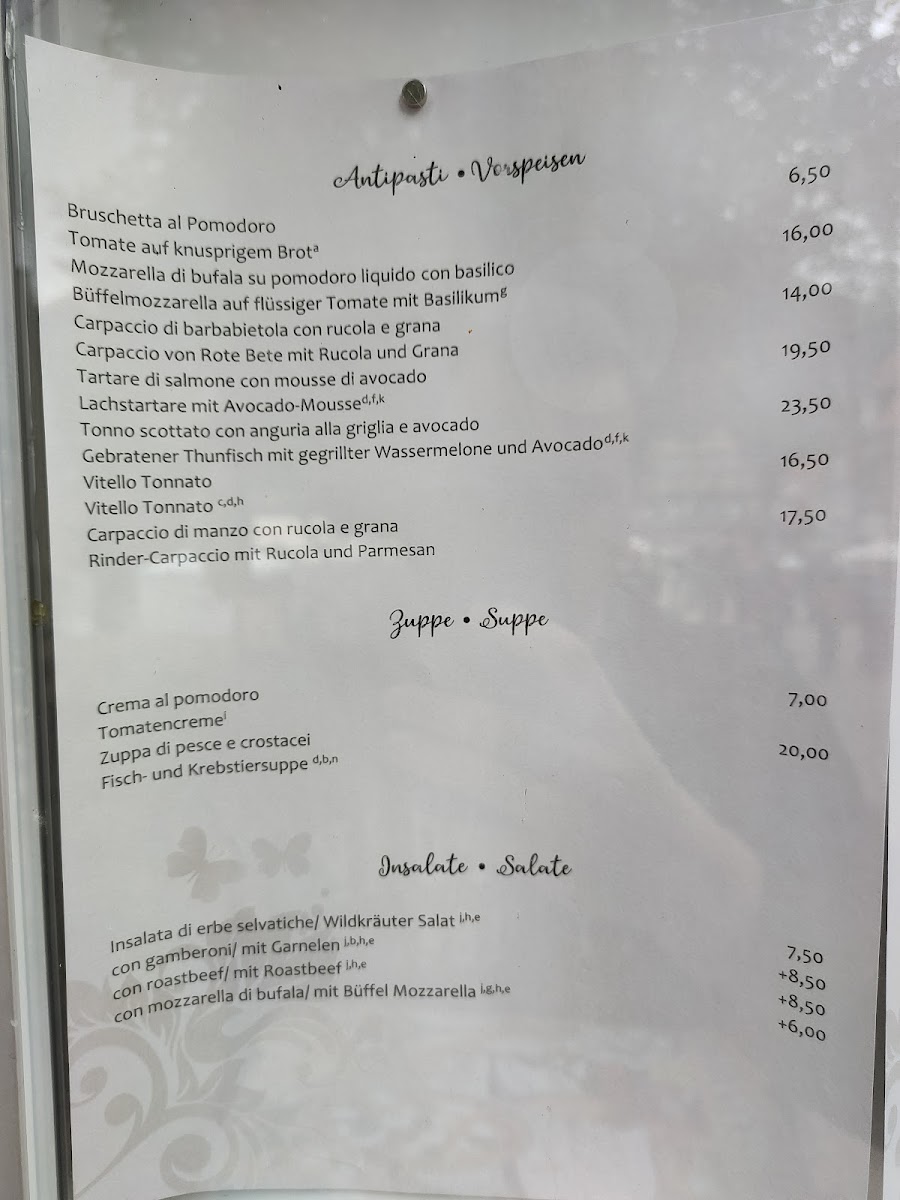 Antipasti • Vorspeisen
Bruschetta al Pomodoro 6,50
Tomate auf knusprigem Brot^a
Mozzarella di bufala su pomodoro liquido con basilico 16,00
Büffelmozzarella auf flüssiger Tomate mit Basilikum^g
Carpaccio di barbabietola con rucola e grana 14,00
Carpaccio von Rote Bete mit Rucola und Grana
Tartare di salmone con mousse di avocado 19,50
Lachstartare mit Avocado-Mousse^d,f,k
Tonno scottato con anguria alla griglia e avocado 23,50
Gebratener Thunfisch mit gegrillter Wassermelone und Avocado^d,f,k
Vitello Tonnato 16,50
Vitello Tonnato ^c,d,h
Carpaccio di manzo con rucola e grana 17,50
Rinder-Carpaccio mit Rucola und Parmesan
Zuppe • Suppe
Crema al pomodoro 7,00
Tomatencreme^i
Zuppa di pesce e crostacei 20,00
Fisch- und Krebstiersuppe ^d,b,n
Insalate • Salate
Insalata di erbe selvatiche/ Wildkräuter Salat ^i,h,e 7,50
con gamberoni/ mit Garnelen ^i,b,h,e +8,50
con roastbeef/ mit Roastbeef ^i,h,e +8,50
con mozzarella di bufala/ mit Büffel Mozzarella ^i,g,h,e +6,00